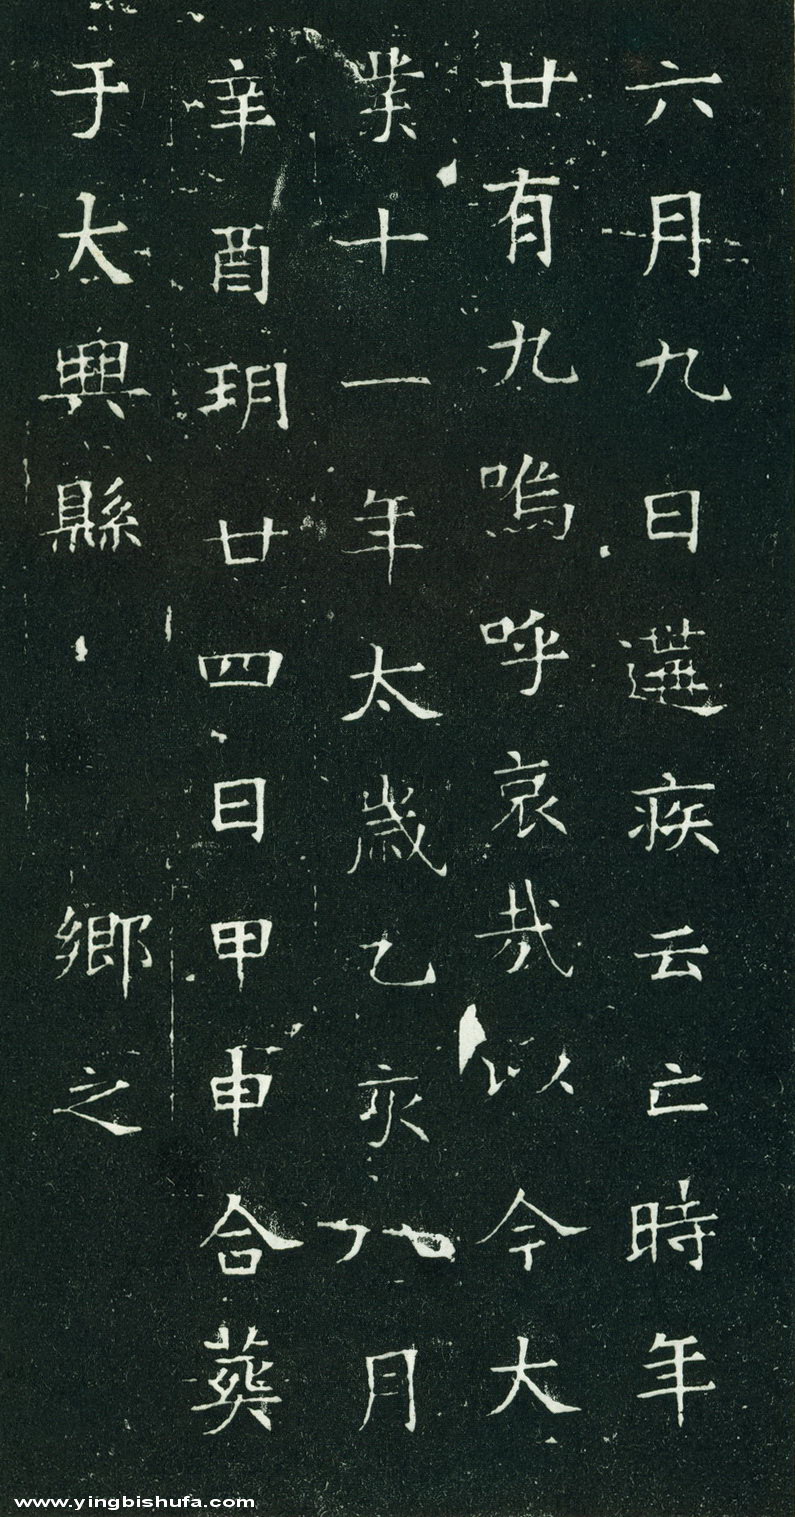 六月九日遘疾云亡時年
廿有九嗚呼哀哉以今大
業十一年太歲乙亥八月
辛酉玥廿四日甲申合葬
于大興縣 鄉之
www.yingbishufa.com